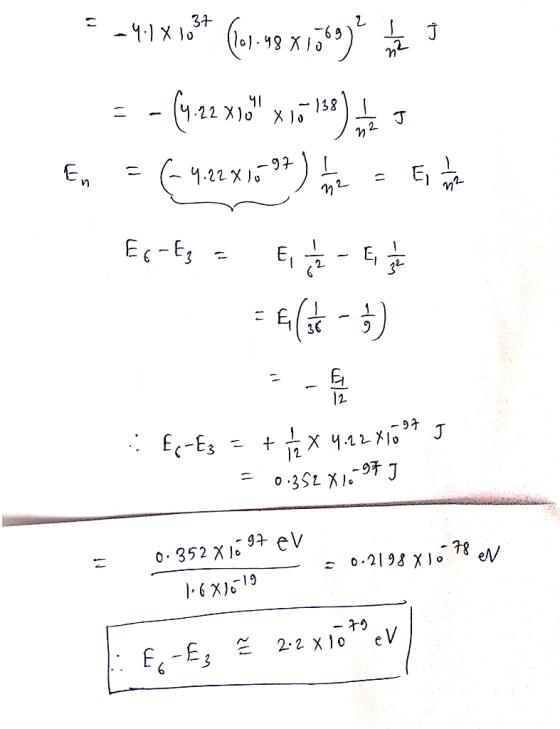 = -4.1 X 10^37 (101.48 X 10^-69)^2 1/n^2 J
= - (4.22 X 10^41 X 10^-138) 1/n^2 J
En = (-4.22 X 10^-97) 1/n^2 = E1 1/n^2
E6-E3 = E1 1/6^2 - E1 1/3^2
= E1 (1/36 - 1/9)
= - E1/12
∴ E6-E3 = + 1/12 X 4.22 X 10^-97 J
= 0.352 X 10^-97 J
= 0.352 X 10^-97 eV / 1.6 X 10^-19 = 0.2198 X 10^-78 eV
∴ E6-E3 ≅ 2.2 X 10^-79 eV